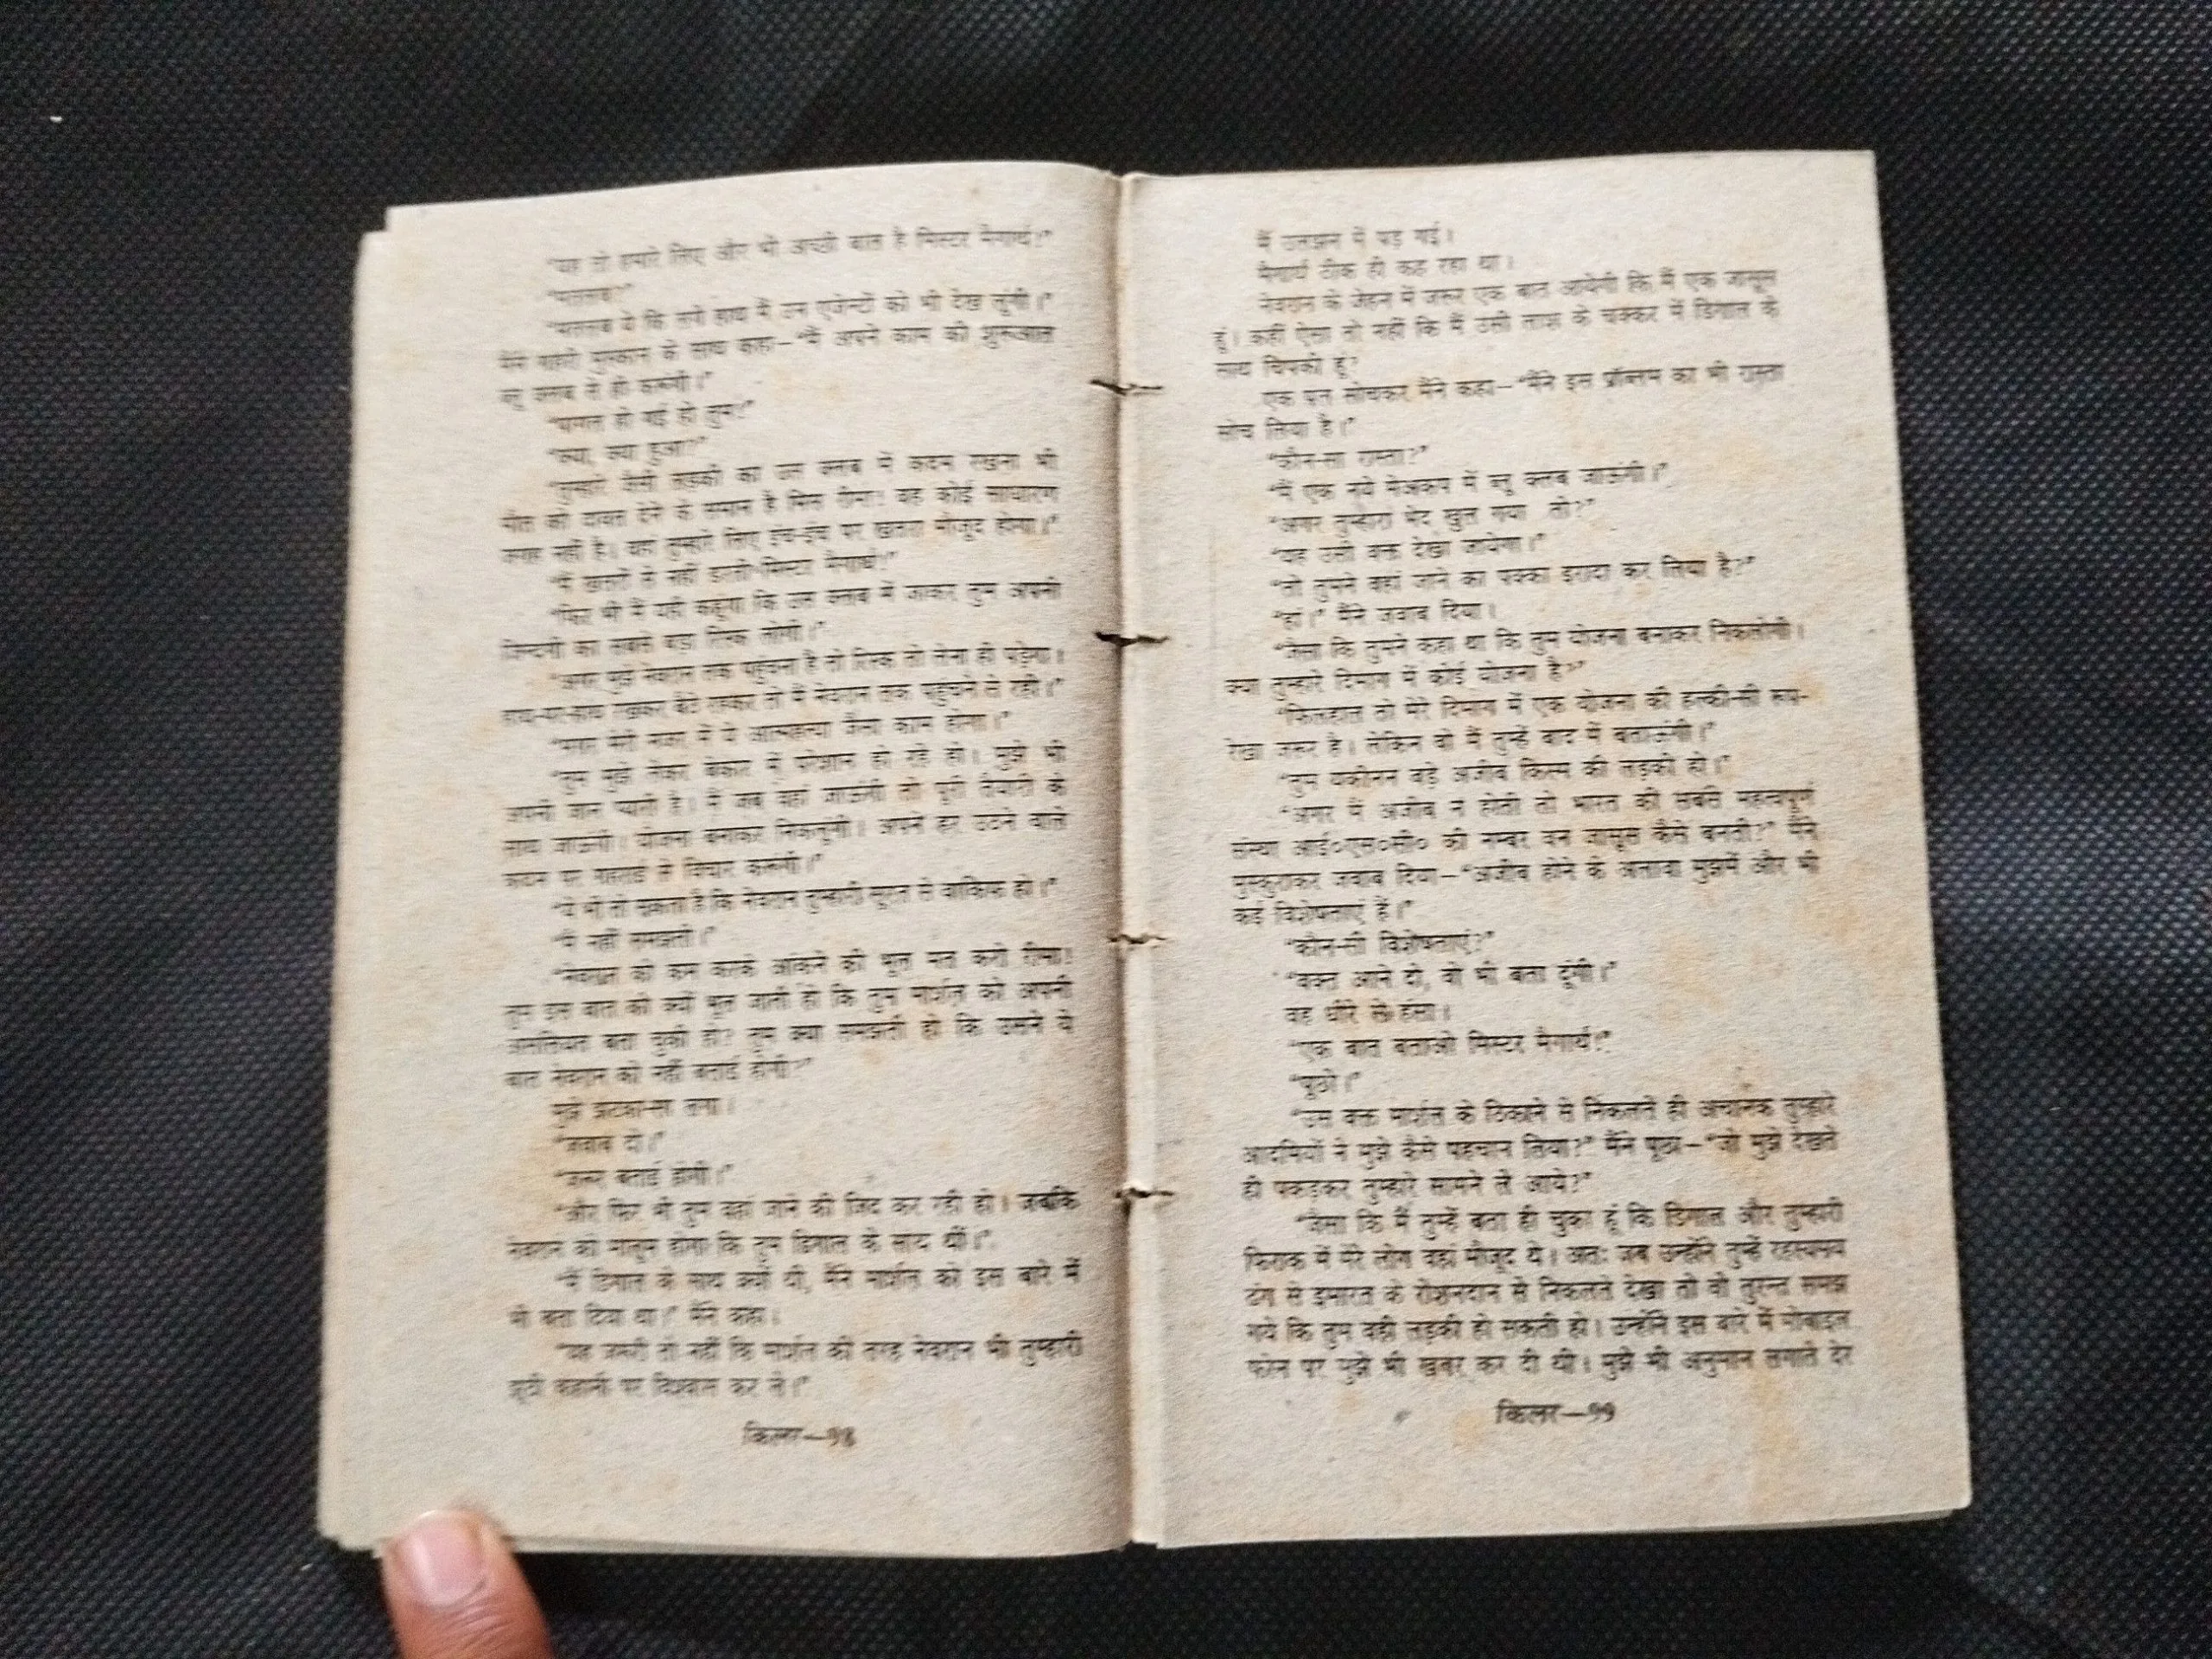 “यह तो हमारे लिए और भी अच्छी बात है मिस्टर मैगार्थ!”
“मतलब?”
“मतलब ये कि लगे हाथ मैं उन एजेन्टों को भी देख लूंगी।”
मैंने गहरी मुस्कान के साथ कहा—“मैं अपने काम की शुरूआत
ब्लू क्लब से ही करूंगी।”
“पागल हो गई हो तुम!”
“क्या, क्या हुआ?”
“तुम्हारे जैसी लड़की का उस क्लब में कदम रखना भी
मौत को दावत देने के समान है मिस रीमा! वह कोई साधारण
जगह नहीं है। वहां तुम्हारे लिए इंच-इंच पर खतरा मौजूद होगा।”
“मैं खतरों से नहीं डरती मिस्टर मैगार्थ!”
“फिर भी मैं यही कहूंगा कि उस क्लब में जाकर तुम अपनी
जिन्दगी का सबसे बड़ा रिस्क लोगी।”
“अगर मुझे नेवरान तक पहुंचना है तो रिस्क तो लेना ही पड़ेगा।
हाथ-पर-हाथ रखकर बैठे रहकर तो मैं नेवरान तक पहुंचने से रही।”
“मगर मेरी नजर में ये आत्महत्या जैसा काम होगा।”
“तुम मुझे लेकर बेकार में परेशान हो रहे हो। मुझे भी
अपनी जान प्यारी है। मैं जब वहां जाऊंगी तो पूरी तैयारी के
साथ जाऊंगी। योजना बनाकर निकलूंगी। अपने हर उठने वाले
कदम पर गहराई से विचार करूंगी।”
“ये भी तो हो सकता है कि नेवरान तुम्हारी सूरत से वाकिफ हो।”
“मैं नहीं समझती।”
“नेवरान को कम करके आंकने की भूल मत करो रीमा!
तुम इस बात को क्यों भूल जाती हो कि तुम मार्शल को अपनी
असलियत बता चुकी हो? तुम क्या समझती हो कि उसने ये
बात नेवरान को नहीं बताई होगी?”
मुझे झटका-सा लगा।
“जवाब दो।”
“जरूर बताई होगी।”
“और फिर भी तुम वहां जाने की जिद कर रही हो। जबकि
नेवरान को मालूम होगा कि तुम डिगाल के साथ थीं।”
“मैं डिगाल के साथ क्यों थी, मैंने मार्शल को इस बारे में
भी बता दिया था।” मैंने कहा।
“यह जरूरी तो नहीं कि मार्शल की तरह नेवरान भी तुम्हारी
झूठी कहानी पर विश्वास कर ले।”
किलर—98
मैं उलझन में पड़ गई।
मैगार्थ ठीक ही कह रहा था।
नेवरान के जेहन में जरूर एक बात आयेगी कि मैं एक जासूस
हूं। कहीं ऐसा तो नहीं कि मैं उसी लाश के चक्कर में डिगाल के
साथ चिपकी हूं?
एक पल सोचकर मैंने कहा—“मैंने इस प्रॉब्लम का भी रास्ता
सोच लिया है।”
“कौन-सा रास्ता?”
“मैं एक नये मेकअप में ब्लू क्लब जाऊंगी।”
“अगर तुम्हारा भेद खुल गया तो?”
“यह उसी वक्त देखा जायेगा।”
“तो तुमने वहां जाने का पक्का इरादा कर लिया है?”
“हां।” मैंने जवाब दिया।
“जैसा कि तुमने कहा था कि तुम योजना बनाकर निकलोगी।
क्या तुम्हारे दिमाग में कोई योजना है?”
“फिलहाल तो मेरे दिमाग में एक योजना की हल्की-सी रूप-
रेखा जरूर है। लेकिन वो मैं तुम्हें बाद में बताऊंगी।”
“तुम यकीनन बड़े अजीब किस्म की लड़की हो।”
“अगर मैं अजीब न होती तो भारत की सबसे महत्वपूर्ण
संस्था आई०एस०सी० की नम्बर वन जासूस कैसे बनती?” मैंने
मुस्कुराकर जवाब दिया—“अजीब होने के अलावा मुझमें और भी
कई विशेषताएं हैं।”
“कौन-सी विशेषताएं?”
“वक्त आने दो, वो भी बता दूंगी।”
वह धीरे से हंसा।
“एक बात बताओ मिस्टर मैगार्थ!”
“पूछो।”
“उस वक्त मार्शल के ठिकाने से निकलते ही अचानक तुम्हारे
आदमियों ने मुझे कैसे पहचान लिया?” मैंने पूछा—“जो मुझे देखते
ही पकड़कर तुम्हारे सामने ले आये?”
“जैसा कि मैं तुम्हें बता ही चुका हूं कि डिगाल और तुम्हारी
फिराक में मेरे लोग वहां मौजूद थे। अतः जब उन्होंने तुम्हें रहस्यमय
ढंग से इमारत के रोशनदान से निकलते देखा तो वो तुरन्त समझ
गये कि तुम वही लड़की हो सकती हो। उन्होंने इस बारे में मोबाइल
फोन पर मुझे भी खबर कर दी थी। मुझे भी अनुमान लगाते देर
किलर—99